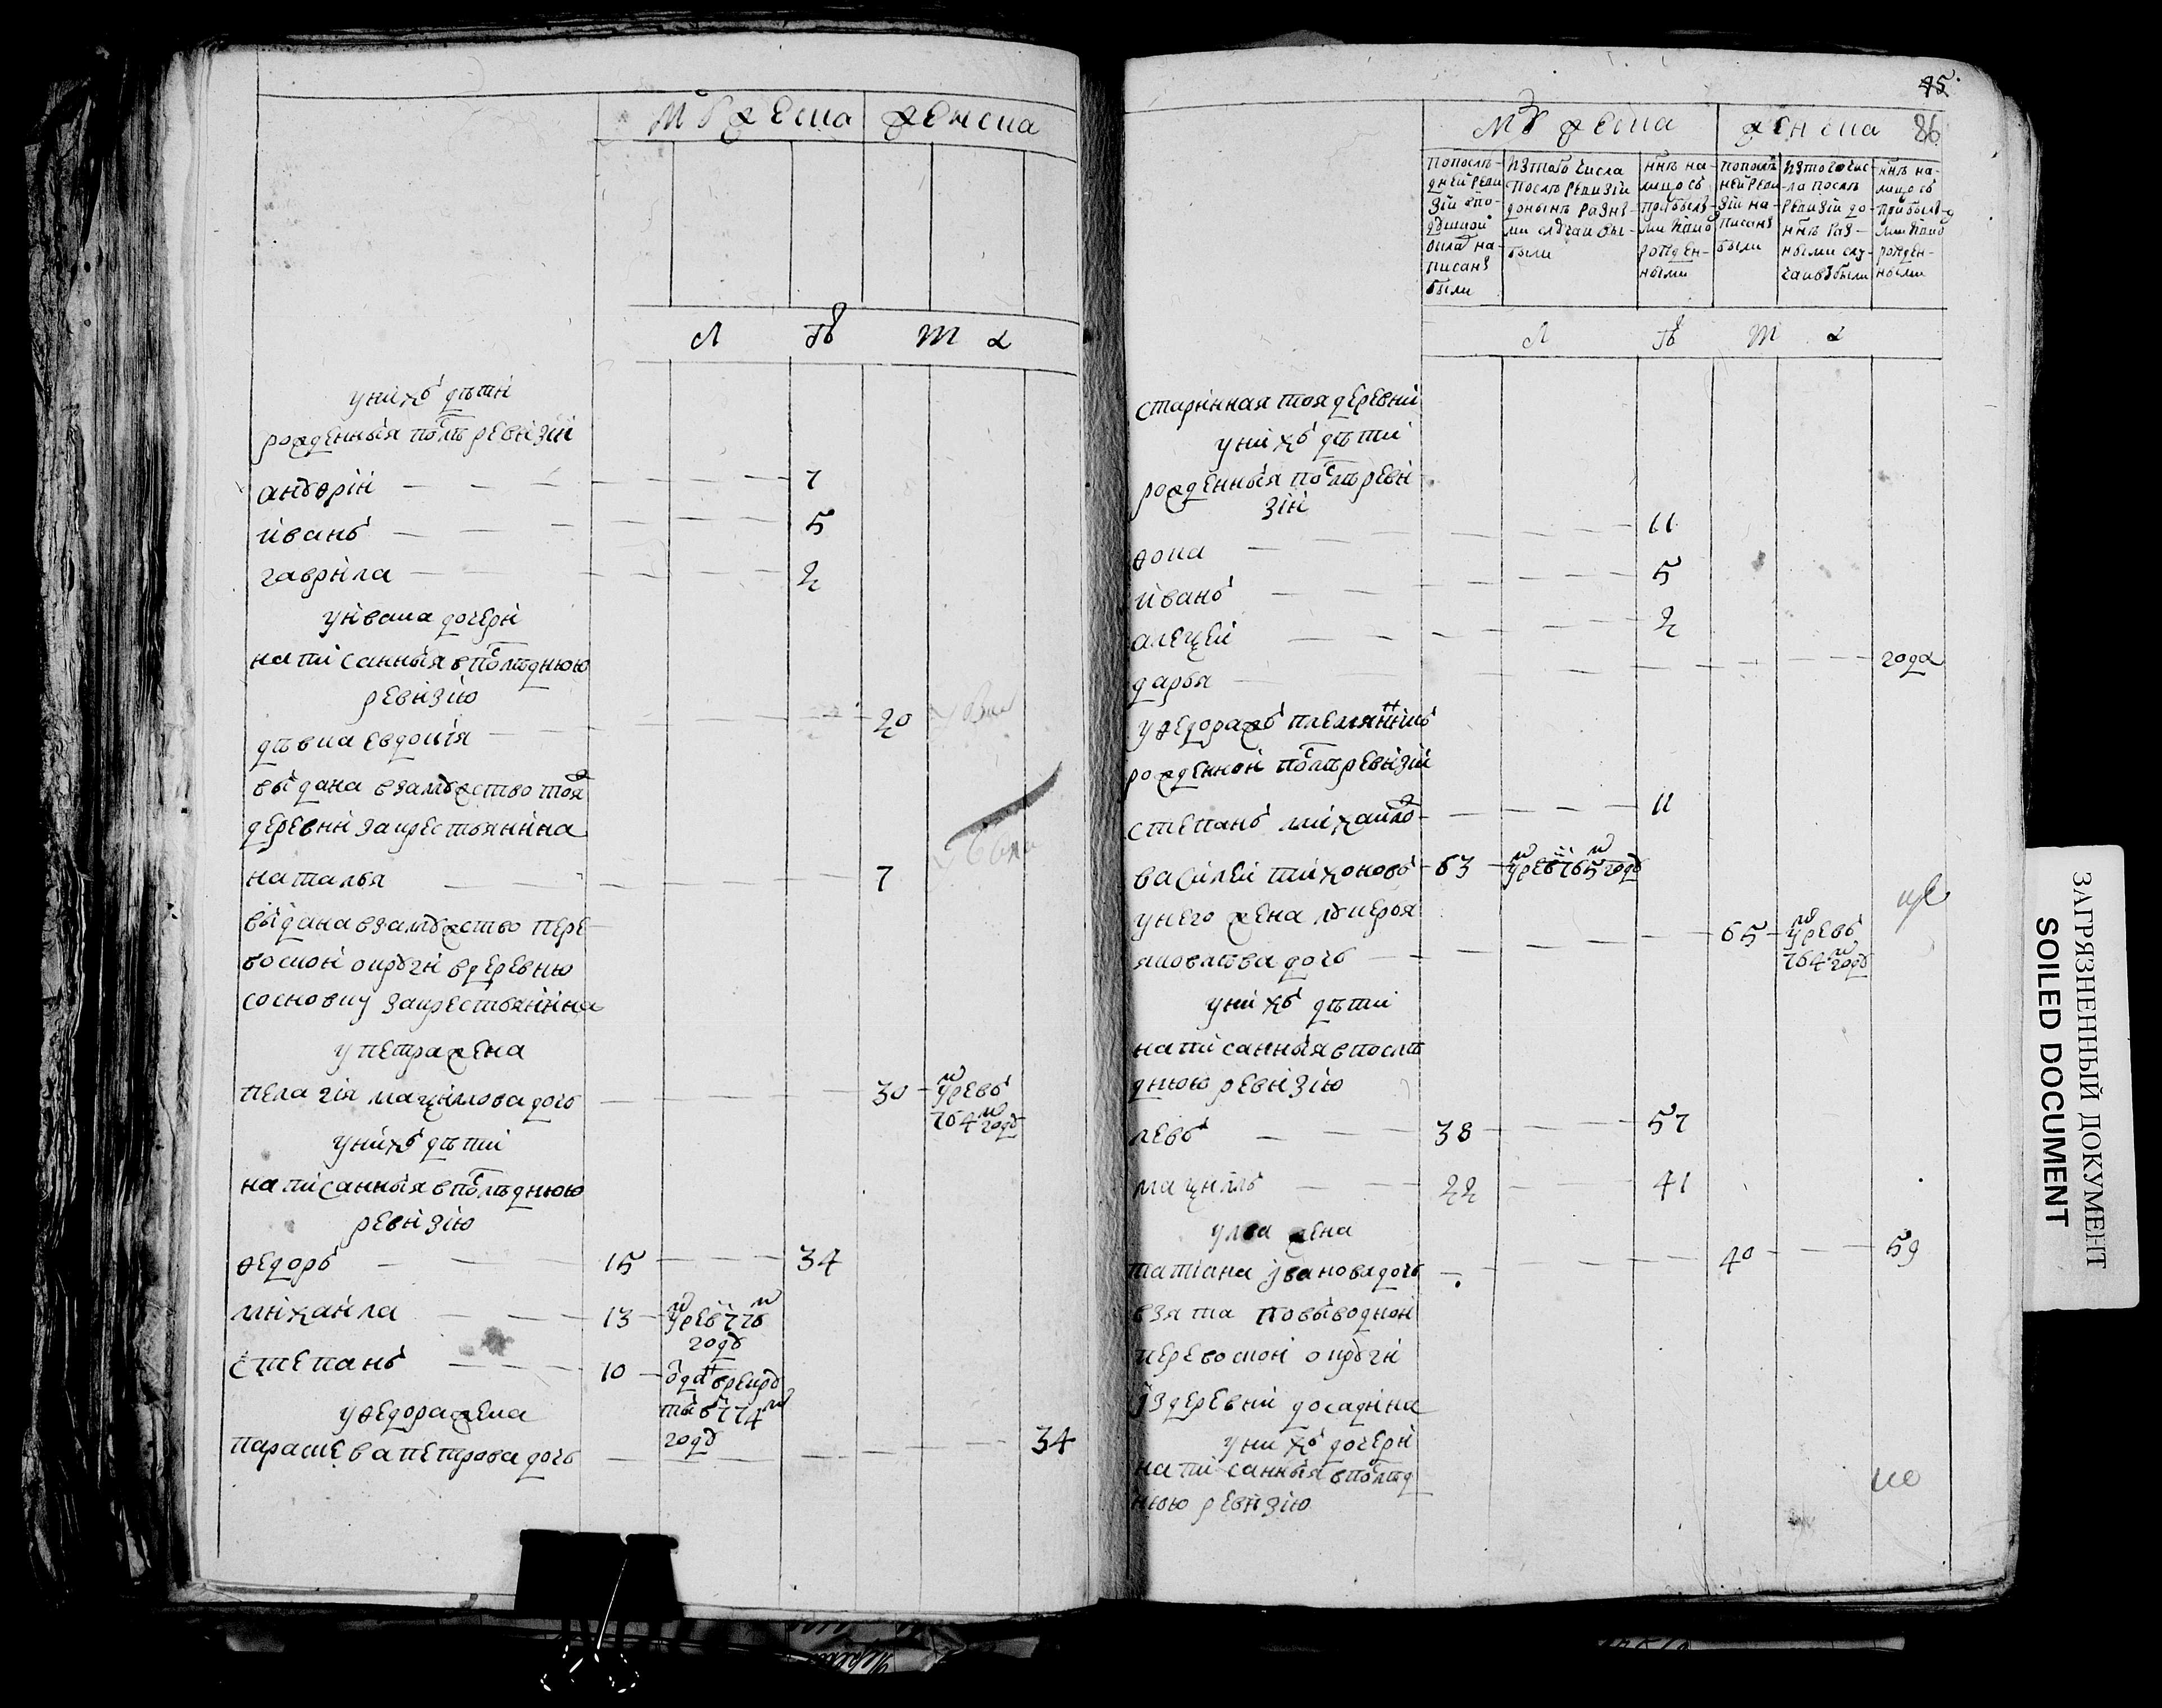 мужеска женска
л ть т а
у нихъ дѣти
рожденныя послѣ ревизіи
андрѣи — 7
иванъ — 5
гаврила — 2
у ивана дочери
написанныя в послѣднюю
ревизию
дѣвка евдокия — 20
выдана в замужство тоя
деревни за крестьянина
наталья — 7
выдана в замужство пере
воскои округи в деревню
сосновку за крестьянина
у петра жена
пелагия макѯимова дочь — 30 — умре въ
764м году
у нихъ дѣти
написанныя в послѣднюю
ревизию
ѳедоръ — 15 — 34
михаила — 13 — умре в 776м
году
степанъ — 10 — отдан в рекру
ты в 774м
году
у ѳедора жена
парасковья петрова дочь — 34
45
86
мужеска женска
по послѣ-
дней реви
зіи
написаны
были
из того числа
послѣ ревизіи
до нынѣ разны-
ми случаи вы-
были
ннѣ на-
лицо съ
прибылы-
ми и вно
рожден-
ными
по послѣд
ней реви
зіи на-
писаны
были
из того чис-
ла послѣ
ревизіи до-
ннѣ раз-
ными слу-
чаи выбыли
ннѣ на-
лицо съ
прибылы-
ми и вно
рожден-
ными
л ть т а
старинная тоя деревни
у нихъ дѣти
рожденныя послѣ реви
зіи
ѳока — 11
иванъ — 5
алеѯеи — 2
дарья — года
у ѳедора жъ племянникъ
рожденнои послѣ ревизіи
степанъ михаило — 11
василеи тихоновъ — 63 — умре в 765м году
у него жена лукерья
яковлева дочь — 65 — умре въ
764м году
у нихъ дѣти
написанныя в послѣ
днюю ревизию
левъ — 38 — 57
маѯимъ — 22 — 41
у лва жена
татиана иванова дочь — 40 — 59
взята по выводнои
перевоскои округи
из деревни досадина
у нихъ дочери
написанныя в послѣд
нюю ревизию
ЗАГРЯЗНЕННЫЙ ДОКУМЕНТ
SOILED DOCUMENT